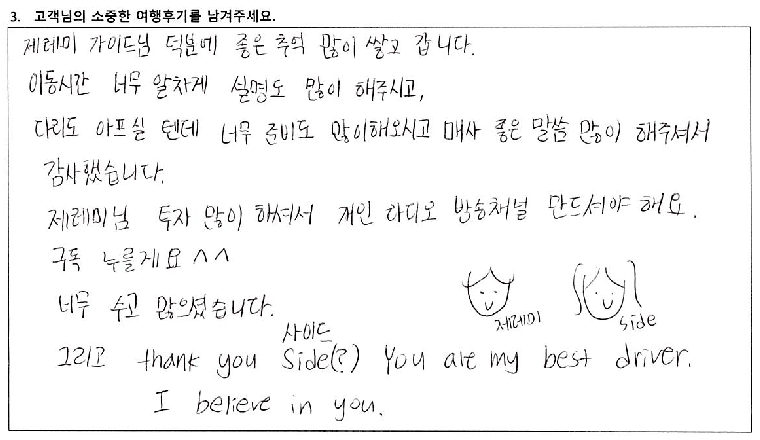 3. 고객님의 소중한 여행후기를 남겨주세요.
제레미 가이드님 덕분에 좋은 추억 많이 쌓고 갑니다.
이동시간 너무 알차게 설명도 많이 해주시고,
다리도 아프실 텐데 너무 준비도 많이해오시고 매사 좋은 말씀 많이 해주셔서
감사했습니다.
제레미님 투자 많이 하셔서 개인 라디오 방송채널 만드셔야 해요.
구독 누를게요 ^^
너무 수고 많으셨습니다.
제레미 side
사이드
그리고 thank you Side(?) You are my best driver.
I believe in you.